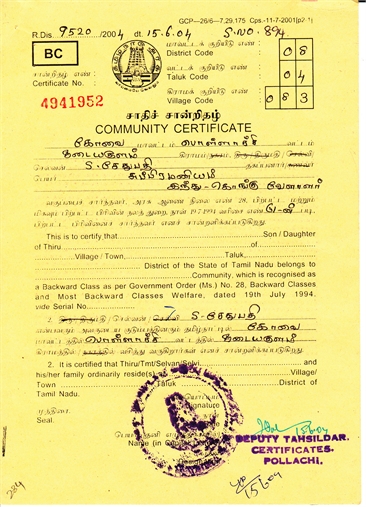 GCP—26/6—7,29,175 Cps.-11-7-2001[p2 1]
R.Dis. 9520 /2004 dt. 15.6.04 S.NO. 894
BC
மாவட்டக் குறியீடு எண் :
District Code 08
சான்றிதழ் எண் :
Certificate No. :
வட்டக் குறியீடு எண் :
Taluk Code 04
4941952
கிராமக் குறியீடு எண் :
Village Code 083
சாதிச் சான்றிதழ்
COMMUNITY CERTIFICATE
கோவை மாவட்டம் பொள்ளாச்சி வட்டம்
கிராமம்
செல்வன் S. சேதுபதி
பெயர் சுப்பிரமணியம்
இந்து - கொங்கு வேளாளர்
வகுப்பைச் சார்ந்தவர். அரசு ஆணை நிலை எண் 28, பிற்பட்ட மற்றும்
மிகவும் பிற்பட்ட நலத் துறை, நாள் 19.7.1994 வரிசை எண்
பிற்பட்ட வகுப்பைச் சார்ந்தவர் எனச் சான்றளிக்கப்படுகிறது.
This is to certify that Son / Daughter
of Thiru of
Village / Town Taluk
District of the State of Tamil Nadu belongs to
Community, which is recognised as
a Backward Class as per Government Order (Ms.) No. 28, Backward Classes
and Most Backward Classes Welfare, dated 19th July 1994.
vide Serial No.
2. செல்வன் S. சேதுபதி
என்பவரும் அவரது குடும்பத்தினரும் தமிழ்நாட்டில் கோவை
மாவட்டத்தில் பொள்ளாச்சி வட்டத்தில்
கிராமத்தில் வசித்து வருகிறார்கள் எனச் சான்றளிக்கப்படுகிறது.
2. It is certified that Thiru/Tmt/Selvan/Selvi and
his/her family ordinarily reside(s) Village/
Town Taluk District of
Tamil Nadu.
முத்திரை
Seal.
Signature
Name (in
15.6.04
DEPUTY TAHSILDAR.
CERTIFICATES.
POLLACHI.
15/6/04
284